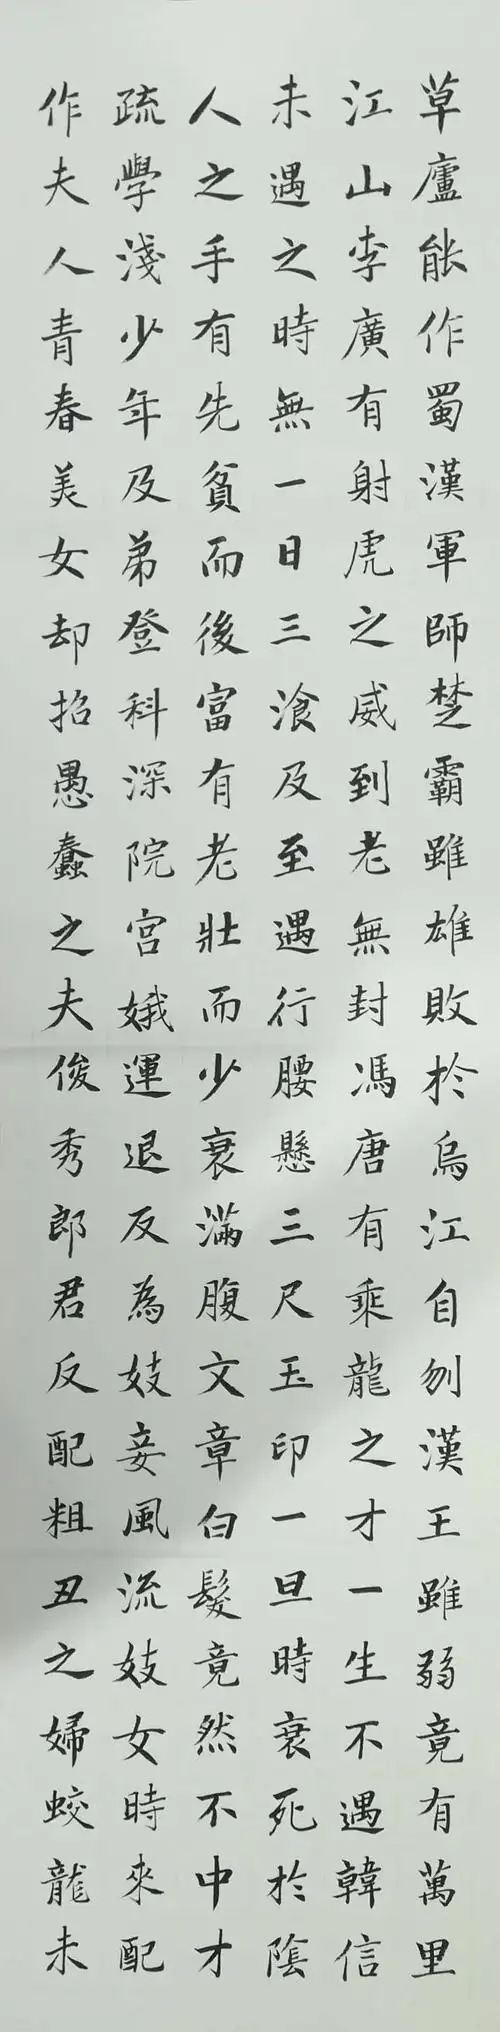 草廬能作蜀漢軍師楚霸雖雄敗於烏江自刎漢王雖弱竟有萬里
江山李廣有射虎之威到老無封馮唐有乘龍之才一生不遇韓信
未遇之時無一日三飡及至遇行腰懸三尺玉印一旦時衰死於陰
人之手有先貧而後富有老壯而少衰滿腹文章白髮竟然不中才
疏學淺少年及弟登科深院宮娥運退反為妓妾風流妓女時來配
作夫人青春美女却招愚蠢之夫俊秀郎君反配粗丑之婦蛟龍未